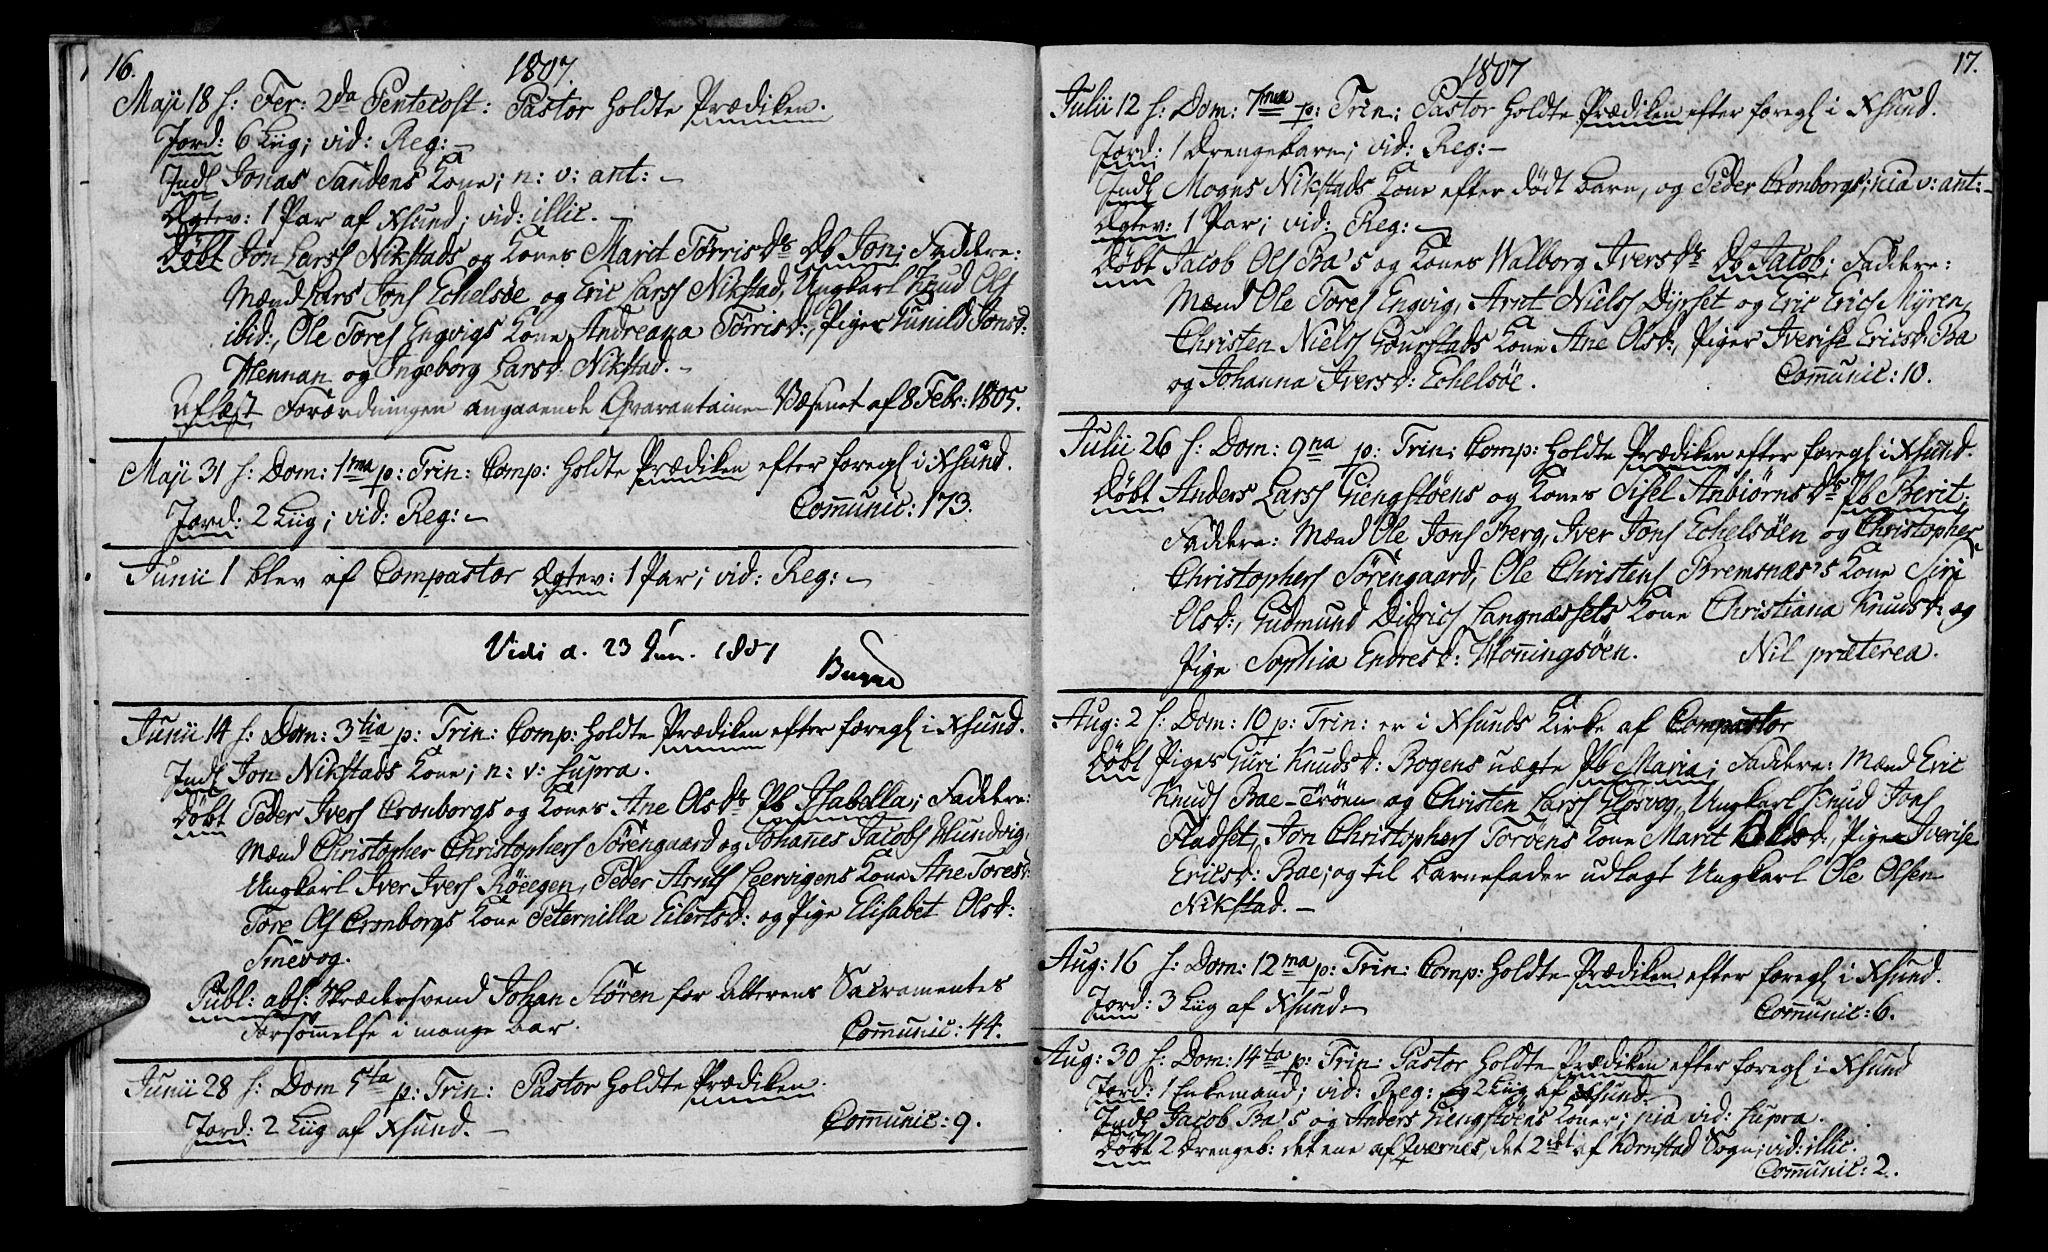 16.
1807.
Maji 18 h: Fer: 2da Pentecost: Pastor holdte Prædiken.
Jord: 6 Liig; vid: Reg: –
Indl Jonas Sandens Kone; n: v: ant: –
Ægtev: 1 Par af Xsund; vid: illic. –
Døbt Jon Larss Nikstads og Kones Marit Tørrisdr Db Jon; Faddere:
Mænd Lars Jons Echelsøe og Eric Larss Nikstad, Ungkarl Knud Ols
ibid:, Ole Tores Engvigs Kone Andreana Tørrisd:, Piger Gunild Jonsd:
Hennan og Ingeborg Larsd. Nikstad. –
Oplæst Forordningen angaaende Qvarantaine-Væsenet af 8 Febr: 1805.
Maji 31 h: Dom: 1ma p: Trin: Comp: holdte Prædiken efter foregl i Xsund.
Jord: 2 Liig; vid: Reg: –
Communic: 173.
Junii 1 blev af Compastor Ægtev: 1 Par; vid: Reg: –
Vidi d. 23 Jun. 1807
Junii 14 h: Dom: 3tia p: Trin: Comp: holdte Prædiken efter foregl i Xsund.
Indl Jon Nikstads Kone; n: v: supra.
Døbt Peder Ivers Cronborgs og Kones Ane Olsdr Pb Isabella; Faddere:
Mænd Christopher Christophers Sörengaard og Johanes Jacobs Hundvig,
Ungkarl Iver Ivers Røeegen, Peder Arnts Leervigens Kone Ane Toresd:
Tore Ols Cronborgs Kone Peternilla Eilertsd: og Pige Elisabet Olsd:
Smevog.
Publ: abs: Skrædersvend Johan Stören for Alterens Sacramentes
Forsømmelse i mange Aar.
Communic: 44.
Junii 28 h: Dom 5ta p: Trin: Pastor holdte Prædiken.
Jord: 2 Liig af Xsund. –
Communic: 9.
17.
1807
Julii 12 h: Dom: 7ma p: Trin: Pastor holdte Prædiken efter foregl i Xsund.
Jord: 1 Drengebarn; vid: Reg: –
Indl Mogns Nikstads Kone efter dødt Barn, og Peder Cronborgs; nia v: ant: –
Ægtev: 1 Par; vid: Reg: –
Døbt Jacob Ols Ba's og Kones Walborg Iversdr Db Jacob; Faddere:
Mænd Ole Tores Engvig, Arnt Niels Dyrset og Eric Erics Myren,
Christen Niels Gourstads Kone Ane Olsd:, Piger Iverise Ericsd: Ba
og Johanna Iversd: Echelsøe.
Communic: 10.
Julii 26 h: Dom: 9na p: Trin: Comp: holdte Prædiken efter foregl i Xsund.
Døbt Anders Larss Giengstøens og Kones Sisel Anbiørnsdr Pb Berit;
Faddere: Mænd Ole Jons Berg, Iver Jons Echelsøen og Christopher
Christophers Sörengaard, Ole Christens Bremsnæs's Kone Siri
Olsd:, Gudmund Didrics Langnæssets Kone Christiana Knudsd: og
Pige Sophia Endresd: Honningsøen.
Nil præterea.
Aug: 2 h: Dom: 10 p: Trin: er i Xsunds Kirke af Compastor
Døbt Piges Guri Knudsd: Bogens uægte Pb Maria; Faddere: Mænd Eric
Knuds Bae-Trøen og Christen Larss Gløsvog, Ungkarl Knud Jons
Fladset, Jon Christophers Torøens Kone Marit Olsd:, Pige Iverise
Ericsd: Bae; og til Barnefader udlagt Ungkarl Ole Olsen
Nikstad. –
Aug: 16 h: Dom: 12ma p: Trin: Comp: holdte Prædiken efter foregl i Xsund.
Jord: 3 Liig af Xsund. –
Communic: 6.
Aug: 30 h: Dom: 14ta p: Trin: Pastor holdte Prædiken efter foregl i Xsund
Jord: 1 Enkemand; vid: Reg: og 2 Liig af Xsund.
Indl Jacob Ba's og Anders Giengstøens Koner; nia vid: supra.
Døbt 2 Drengeb: det ene af Qværnes, det 2det af Kornstad Sogn; vid: illic.
Communic: 2.